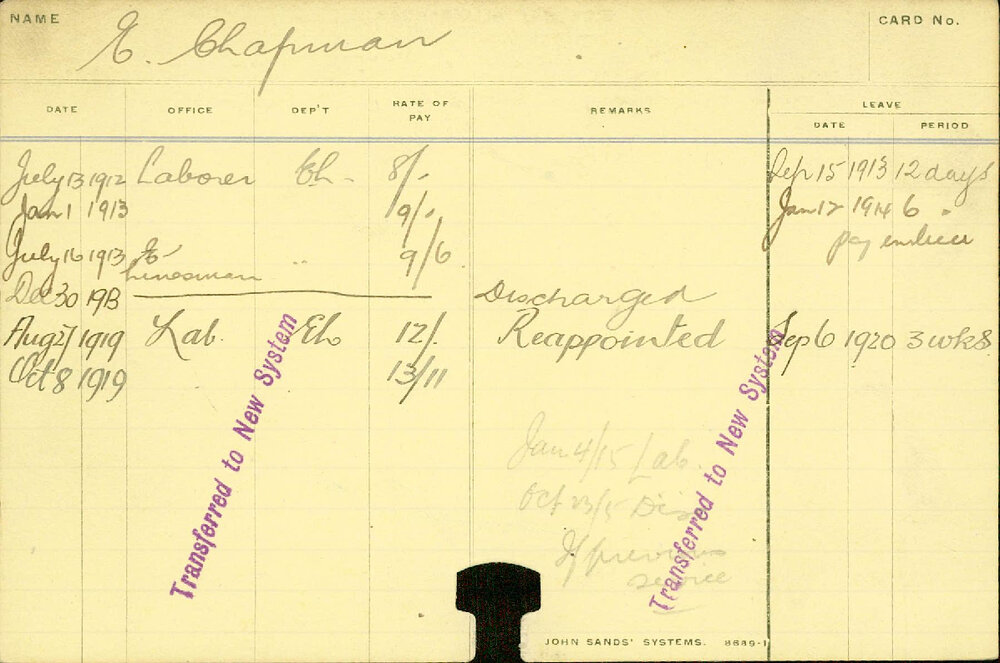 NAME
E. Chapman
CARD No.
DATE OFFICE DEP'T RATE OF PAY REMARKS LEAVE
DATE PERIOD
July 13 1912 Laborer Eh - 8/- Sep 15 1913 12 days
Jan 1 1913 9/- Jan 12 1914 6 "
pay in lieu
July 16 1913 E Linesman " 9/6
Dec 30 1913 Discharged
Aug 27 1919 Lab. Eh 12/- Reappointed Sep 6 1920 3 wks
Oct 8 1919 13/11
Jan 4/15 Lab.
Oct 23/15 Dis
If previous
service
Transferred to New System
Transferred to New System
JOHN SANDS' SYSTEMS. 8689-1